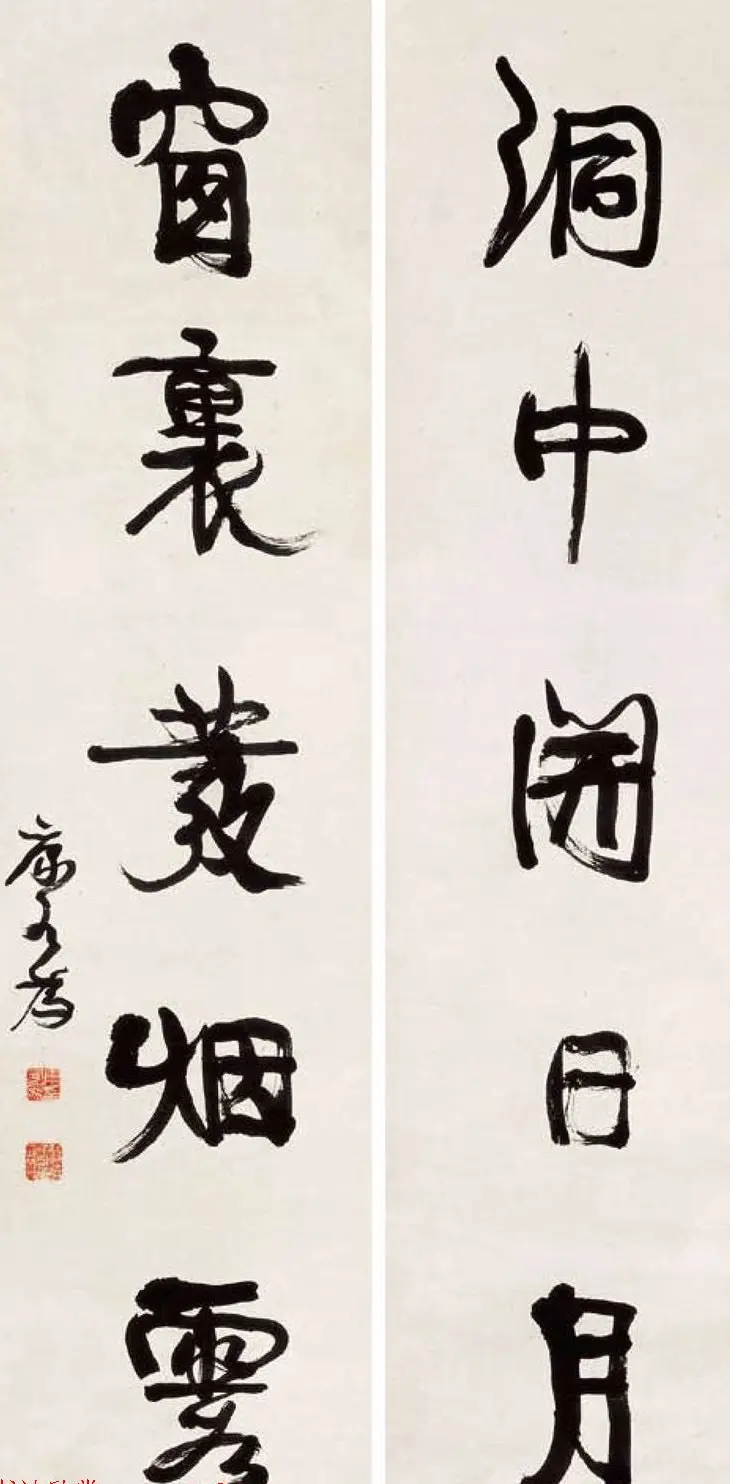 洞中開日月
窗裏發烟霞
康有為